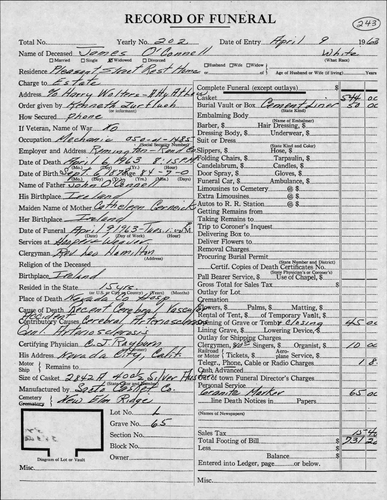 RECORD OF FUNERAL
243
Total No. Yearly No. 202 Date of Entry April 9 1963
Name of Deceased James O'Connell White
(What Race)
Married Single Widowed Divorced Husband Wife Widow
Residence Pleasant Street Rest Home or Age of Husband or Wife (if living) Years
Charge to Estate
Address % Harry Wolters - Atty At Law
Order given by Kenneth
How Secured phone
If Veteran, Name of War No
Occupation Mechanic
(Social Security Number)
Employer and Address Remington-Rand Co
Date of Death April 6 1963 8:15 P.M.
Date of Birth Sept. 6 1878 Age 84-7-0
Name of Father John O'Connell
His Birthplace Ireland
Maiden Name of Mother Catherine Cormick
Her Birthplace Ireland
Date of Funeral April 9 1963
Services at Hooper Weaver
Clergyman Rev Leo Hamilton
Religion of the Deceased
Birthplace Ireland
Resided in the State 15 yrs.
Place of Death Nevada Co Hosp
Cause of Death Recent Cerebral Vascular Accident
Contributory Causes Cerebral Arteriosclerosis
Gen'l Arteriosclerosis
Certifying Physician C.J. Rayburn
His Address Nevada City, Calif.
Motor Ship Remains to
Size of Casket
Manufactured by Casket Co.
Cemetery
Crematory New Elm Ridge
Lot No. L
Grave No. 65
Section No.
Block No.
Owner
Diagram of Lot or Vault
Misc.
Complete Funeral (except outlays) $
Casket
Burial Vault or Box Cement Liner 50 00
Embalming Body
(Name of Embalmer)
Barber, $ Hair Dressing, $
Dressing Body, $ Underwear, $
Suit or Dress
(State Kind and Color)
Slippers, $ Hose, $
Folding Chairs, $ Tarpaulin, $
Candelabrum, $ Candles, $
Door Spray, $ Gloves, $
Funeral Car, $ Ambulance, $
Limousines to Cemetery @ $
Extra Limousines @ $
Autos to R. R. Station @ $
Getting Remains from
Taking Remains to
Trip of Coroner's Inquest
Delivering Box to
Deliver Flowers to
Removal Charges
Procuring Burial Permit
Certified Copies of Death Certificates No.
Pall Bearer Service, $ Use of Chapel, $
Gross Total for Sales Tax $
Outlay for Lot
Cremation
Flowers, $ Palms, $ Matting, $
Rental of Tent, $ of Temporary Vault, $
Opening of Grave or Tomb & Closing 45 00
Lining Grave, $ Lowering Device, $
Outlay for Shipping Charges
Clergymen, $ Singers, $ Organist, $ 10 00
Railroad or Motor Tickets, $ Aeroplane Service, $
Telegr., Phone, Cable or Radio Charges
Cash Advanced
Out of town Funeral Director's Charges
Personal Service
Granite Marker 65 00
line Death Notices in Papers
(Names of Newspapers)
Sales Tax
Total Footing of Bill $
Less
Balance
Entered into Ledger, page or below.
Misc.